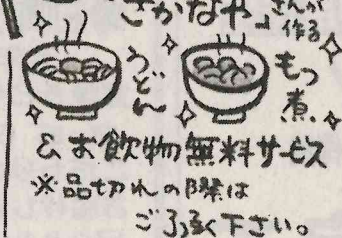 さかなや」さんが作る
うどん
もつ煮
&お飲物無料サービス
※品切れの際は
ご了承下さい。